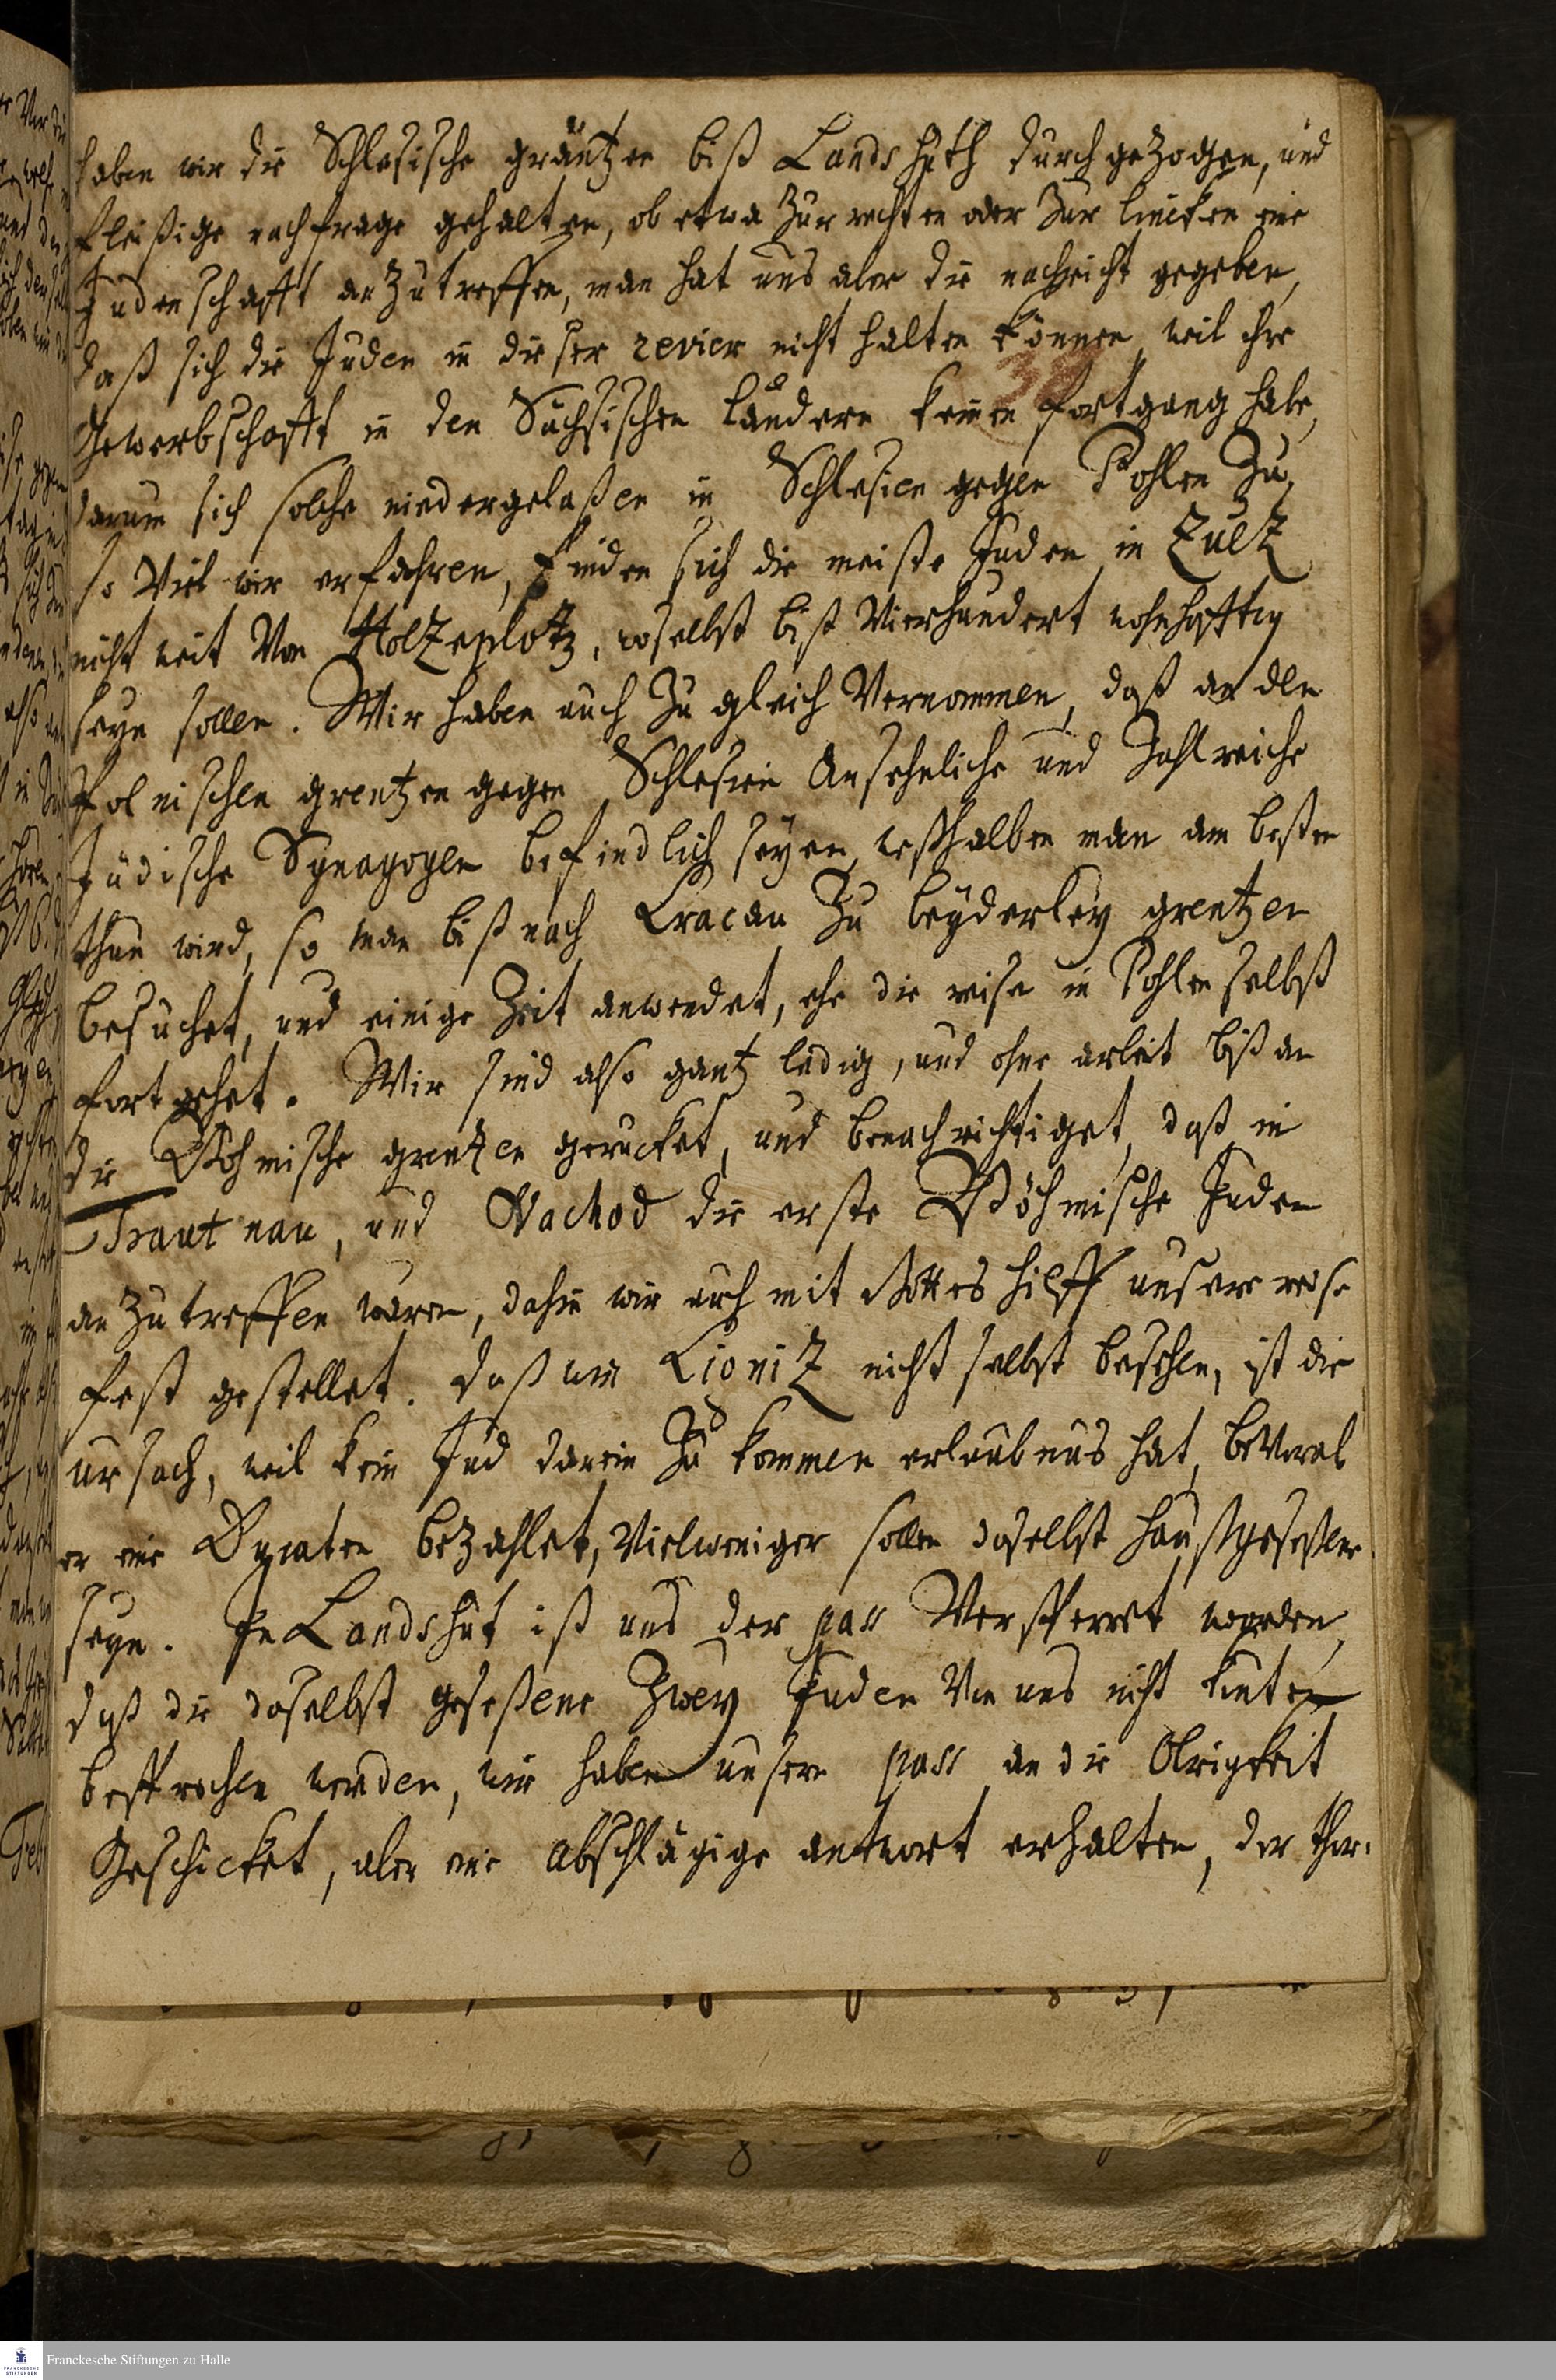 haben wir die Schlesische gräntzen biß Landshuth durchgezogen, und
fleißige nachfrage gehalten, ob etwa zur rechten oder zur lincken eine
Judenschafft anzutreffen, man hat uns aber die nachricht gegeben,
daß sich die Juden in dieser revier nicht halten können, weil ihre
Gewerbschafft in den Sächsischen Ländern keinen fortgang habe,
darum sich solche niedergelaßen in Schlesien gegen Pohlen zu,
so viel wir erfahren, finden sich die meiste Juden in Zültz
nicht weit von Holzeplotz, woselbst biß vierhundert wohnhafftig
seyn sollen. Wir haben auch zu gleich vernommen, daß an den
Polnischen grentzen gegen Schlesien Ansehnliche und zahlreiche
Jüdische Synagogen befindlich seyen, weßhalben man am besten
thun wird, so man biß nach Cracau zu beyderley grentzen
besuchet, und einige Zeit anwendet, ehe die reise in Pohlen selbst
fortgehet. Wir sind also gantz ledig, und ohne arbeit biß an
die Böhmische grentzen gerucket, und benachrichtiget, daß in
Trautnau, und Nachod die erste Böhmische Juden
anzutreffen waren, dahin wir auch mit Gottes hilff unsere reise
fest gestellet. Daß wir Lignitz nicht selbst besehen, ist die
ursach, weil kein Jud darein zu kommen erlaubnus hat, bevoral
er eine Ducaten bezahlet, vielweniger sollen daselbst haußgeseßen
seyn. In Landshut ist uns der pass versperret worden,
daß die daselbst geseßene zwey Juden von uns nicht kunten
besprochen werden, wir haben unsern pass an die Obrigkeit
Geschicket, aber eine abschlägige antwort erhalten, der thor-
Franckesche Stiftungen zu Halle